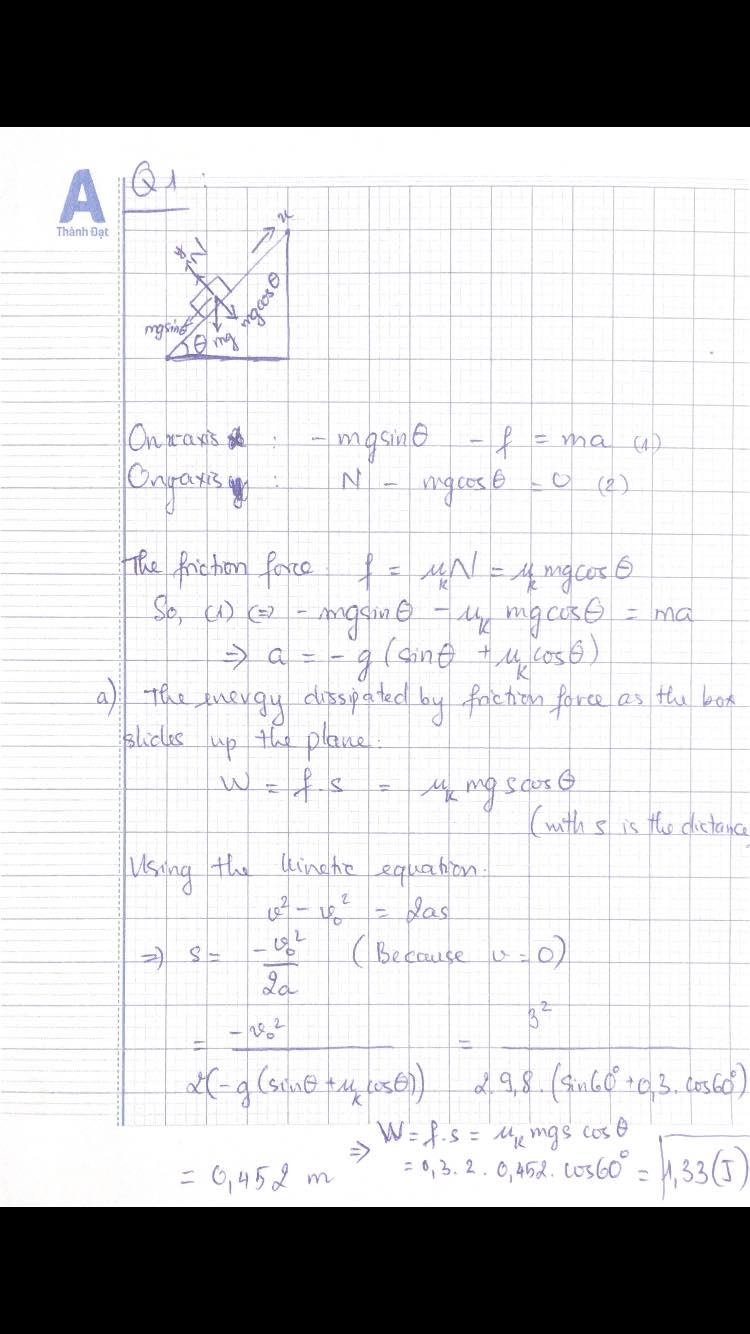 A
Thành Đạt
Q1:
x
N
mgsinθ
θ
mg
mgcosθ
On x-axis : - mgsinθ - f = ma (1)
On y axis : N - mgcosθ = 0 (2)
The friction force: f = μₖN = μₖ mgcosθ
So, (1) (=> - mgsinθ - μₖ mgcosθ = ma
=> a = - g (sinθ + μₖ cosθ)
a) The energy dissipated by friction force as the box
slides up the plane:
W = f.s = μₖ mg s cosθ
(with s is the distance
Using the kinetic equation:
v² - v₀² = 2as
=> s = -v₀² / 2a (Because v = 0)
= -v₀² / 2(-g(sinθ + μₖ cosθ)) = 3² / 2.9,8.(sin60° + 0,3.cos60°)
= 0,452 m => W = f.s = μₖ mgs cosθ
= 0,3.2.0,452.cos60° = 1,33(J)